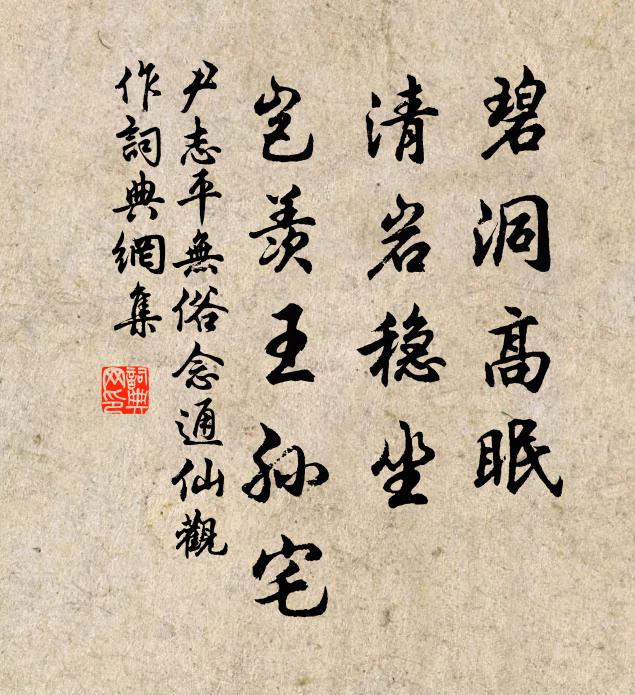 碧洞高眠
清岩稳坐
岂羡王孙宅
尹志平無俗念通仙觀
作詞典網集
詞典网印